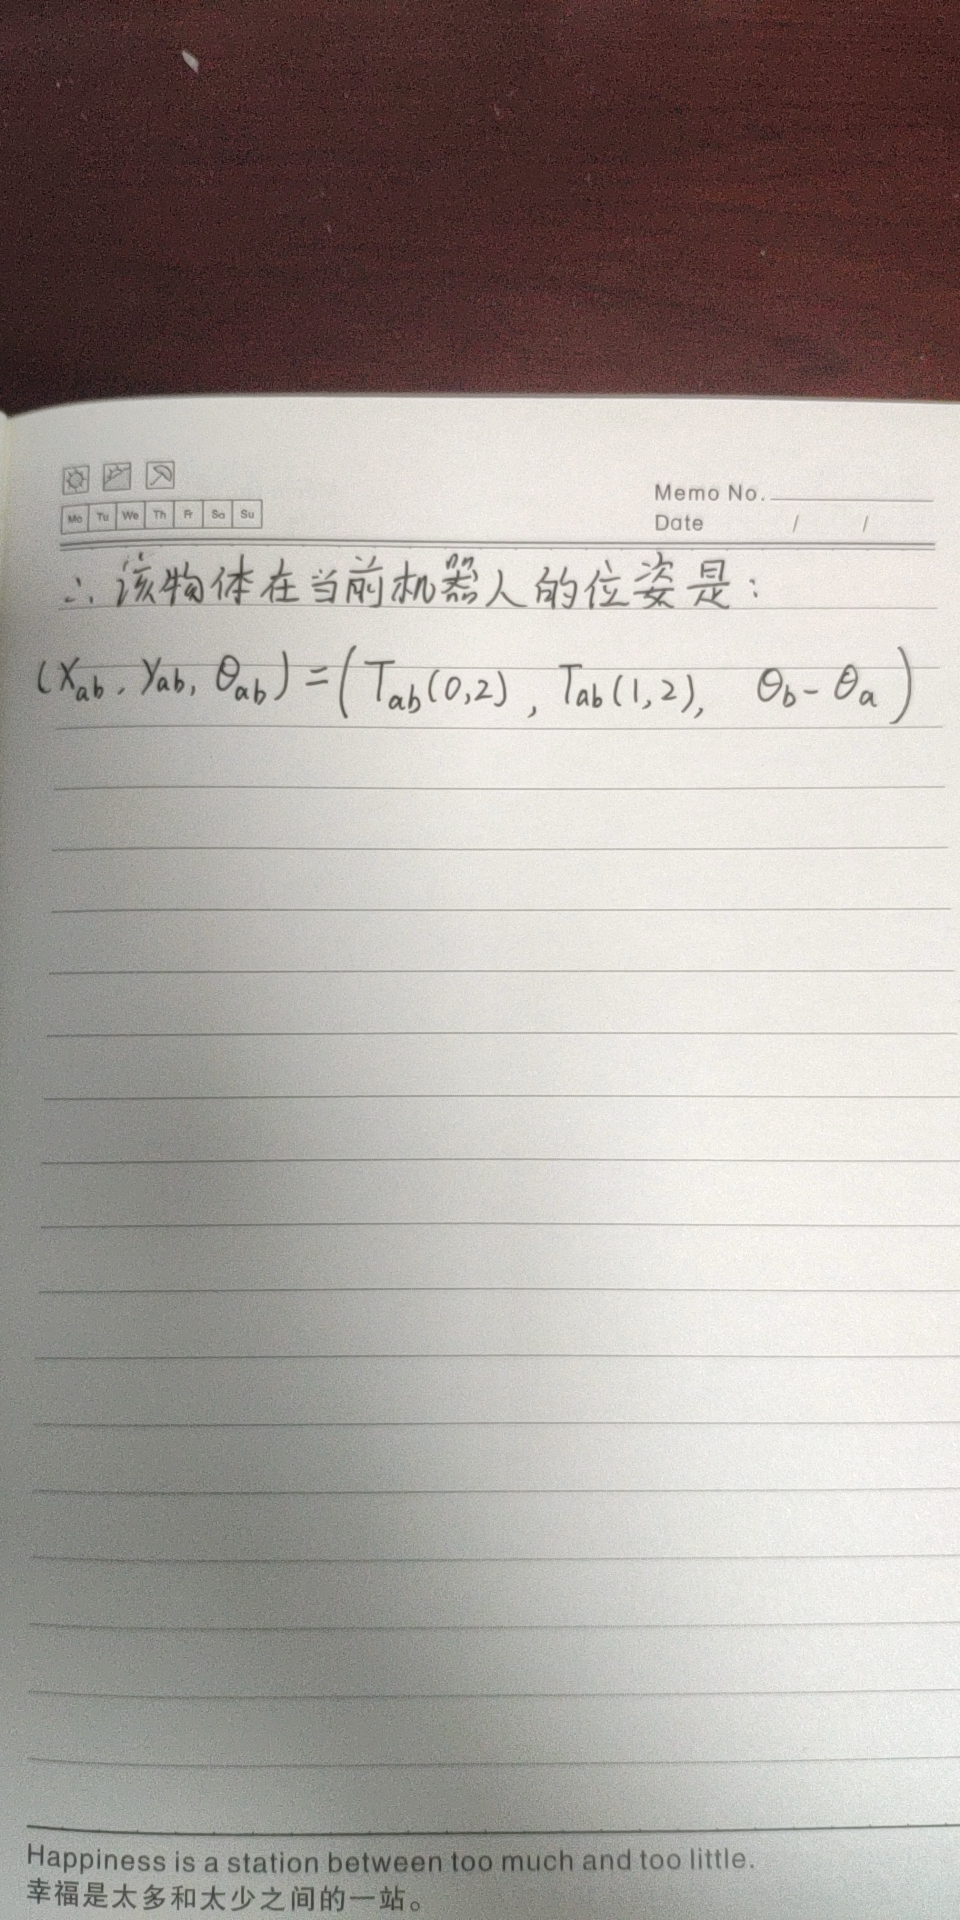 Memo No.
Mo Tu We Th Fr Sa Su
Date / /
∴ 该物体在当前机器人的位姿是：
(x_ab, y_ab, θ_ab) = (T_ab(0,2), T_ab(1,2), θ_b - θ_a)
Happiness is a station between too much and too little.
幸福是太多和太少之间的一站。